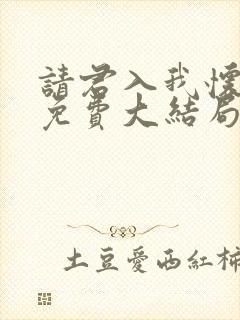 請君入我懷
免費大結局
土豆愛西紅柿